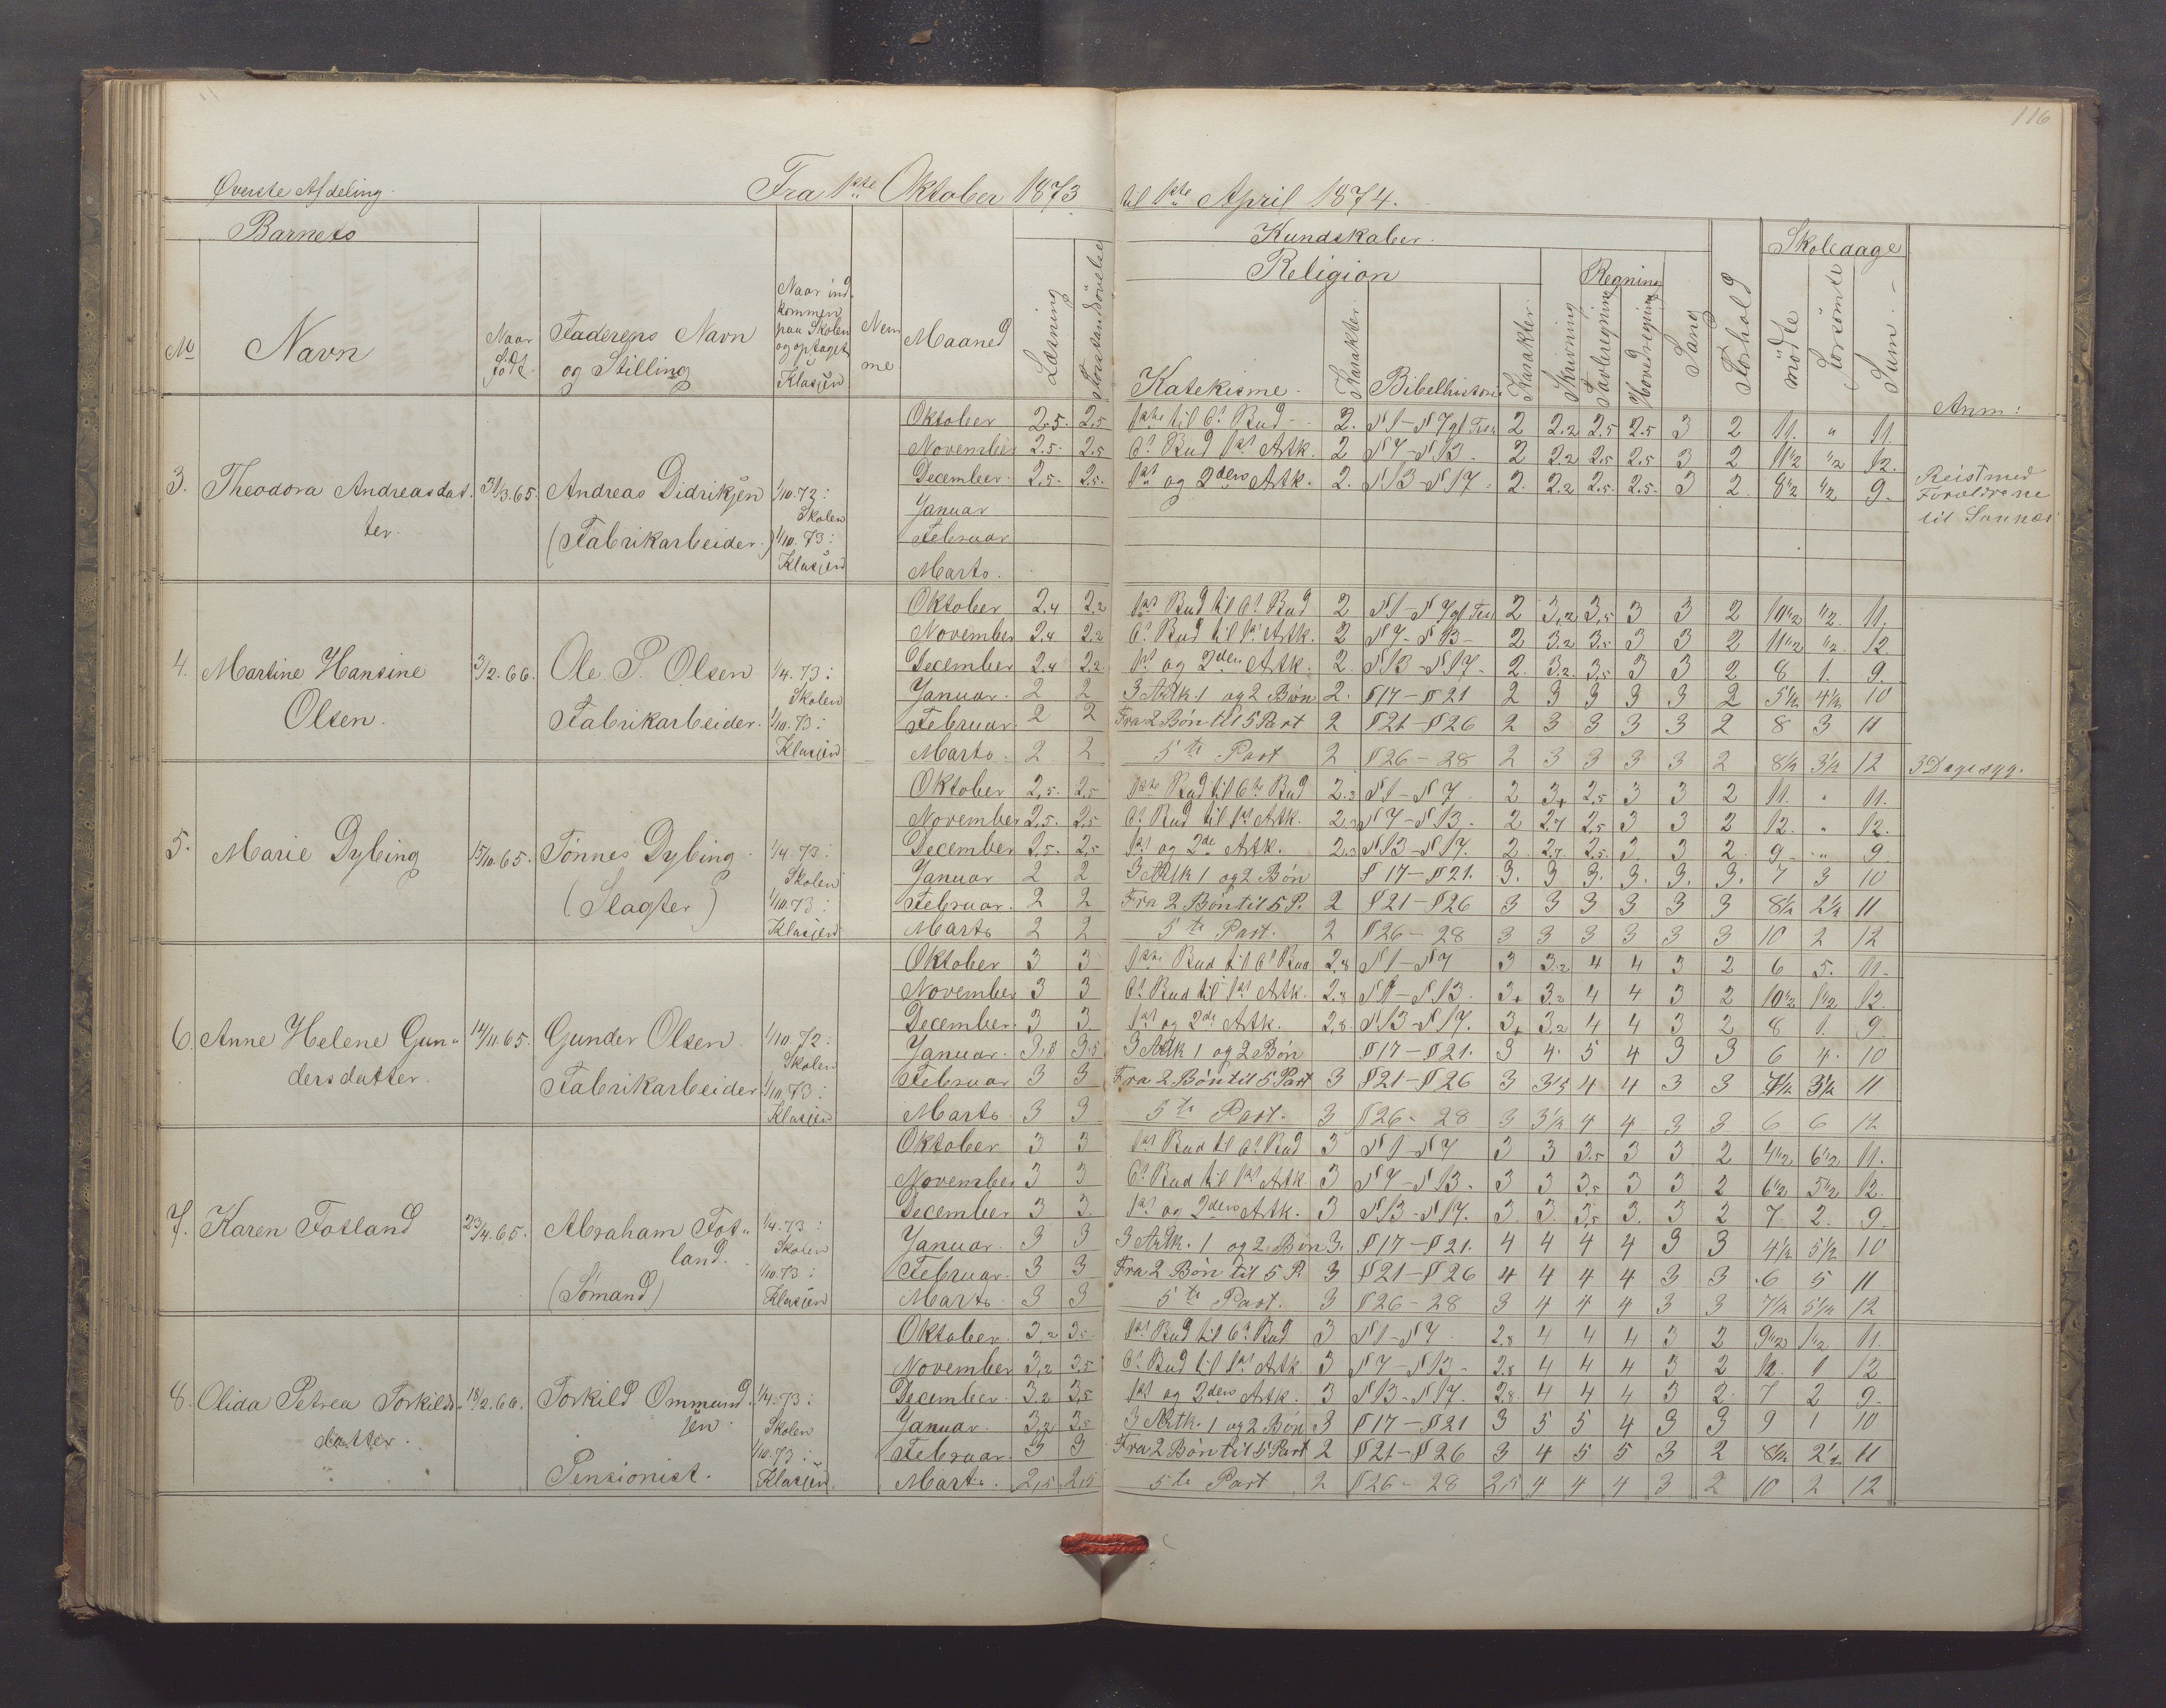 116
Øverste Afdeling. Fra 1ste Oktober 1873 til 1ste April 1874.
Barnets Kundskaber. Skoledage
Religion Regning
No Navn Naar født Faderens Navn og Stilling Naar ind kommen paa Skolen og optaget i Klassen Nem me Maaned Læsning Forstandsövelse Katekisme Karakter Bibelhistorie Karakter Skrivning Tavleregning Hovedregning Sang Forhold mödte Forsömte Sum Anm:
3. Theodora Andreasdat- ter. 31/3.65. Andreas Didriksen (Fabrikarbeider.) 1/10.72: Skolen 1/10.73: Klassen
Oktober 2.5. 2.5 1ste til 6t Bud 2. §1-§7 gl Tes. 2 2.2 2.5 2.5 3 2 11. " 11.
November 2.5. 2.5 6t Bud 1st Artk. 2 §7-§13. 2 2.2 2.5 2.5 3 2 11 1/2 1/2 12.
December 2.5. 2.5. 1st og 2den Artk. 2. §13-§17. 2. 2.2 2.5. 2.5. 3 2. 8 1/2 1/2 9. Reist med Forældrene til
Januar
Februar
Marts.
4. Martine Hansine Olsen. 3/2.66. Ole. P. Olsen Fabrikarbeider. 1/4.73: Skolen 1/10.73: Klassen
Oktober 2,4 2,2 1st Bud til 6t Bud 2 §1-§7 gl Tes. 2 3,2 3,5 3 3 2 10 1/2 1/2 11.
November 2,4 2,2 6t Bud til 1st Artk. 2 §7-§13- 2 3.2 3.5 3 3 2 11 1/2 1/2 12
December 2,4 2,2 1st og 2den Artk. 2. §13-§17. 2. 3.2. 3,5 3 3 2 8 1. 9.
Januar. 2 2 3 Artk. 1 og 2 Bøn 2. §17-§21 2 3 3 3 3 2 5 1/2 4 1/2 10
Februar. 2 2 Fra 2 Bøn til 5 Part 2 §21-§26 2 3 3 3 3 2 8 3 11
Marts. 2 2 5te Part 2 §26-28 2 3 3 3 3 2 8 1/2 3 1/2 12 3 Dage syg.
5. Marie Dybing 15/10.65. Tönnes Dybing (Slagter) 1/4.73: Skolen 1/10.73: Klassen
Oktober 2,5. 2,5 1ste Bud til 6te Bud 2.3 §1-§7 2 3+ 2.5 3 3 2 11. " 11.
November 2,5. 2,5 6t Bud til 1st Artk. 2.3 §7-§13. 2 2.7 2,5 3 3 2 12. " 12.
December 2,5. 2,5 1st og 2de Artk. 2.3 §13-§17. 2. 2.7. 2,5. 3. 3 2. 9. " 9.
Januar 2 2 3 Artk 1 og 2 Bøn §17-§21. 3. 3 3. 3. 3. 3. 7 3 10
Februar. 2 2 Fra 2 Bøn til 5 P. 2 §21-§26 3 3 3 3 3 3 8 1/2 2 1/2 11
Marts 2 2 5te Part. 2 §26-28 3 3 3 3 3 3 10 2 12
6. Anne Helene Gun- dersdatter. 14/11.65. Gunder Olsen Fabrikarbeider 1/10.72: Skolen 1/10.73: Klassen
Oktober 3 3 1ste Bud til 6t Bud 2,8 §1-§7 3 3.2 4 4 3 2 6 5. 11.
November 3 3 6t Bud til 1st Artk. 2,8 §7-§13. 3+ 3.2 4 4 3 2 10 1/2 1 1/2 12.
December. 3 3 1st og 2de Artk. 2,8. §13-§17. 3+ 3,2 4 4 3 2 8 1. 9.
Januar. 3,5 3,5 3 Artk 1 og 2 Bøn §17-§21. 3 4. 5 4 3 3 6 4. 10
Februar 3 3 Fra 2 Bøn til 5 Part 3 §21-§26 3 3,5 4 4 3 3 7 1/2 3 1/2 11
Marts 3 3 5te Part. 3 §26-28 3 3 1/2 4 4 3 3 6 6 12
7. Karen Fotland 23/4.65. Abraham Fot- land. (Sømand) 1/4.73: Skolen 1/10.73: Klassen
Oktober 3 3 1st Bud til 6t Bud 3 §1-§7 3 3 3.5 3 3 2 4 1/2 6 1/2 11.
November 3 3 6t Bud til 1st Artk. 3 §7-§13. 3 3 3,5 3 3 2 6 1/2 5 1/2 12.
December 3 3. 1st og 2den Artk. 3 §13-§17. 3. 3. 3,5 3. 3 2 7. 2. 9.
Januar. 3 3 3 Artk. 1 og 2 Bøn 3. §17-§21. 4 4 4 4 3 3 4 1/2 5 1/2 10
Februar. 3 3 Fra 2 Bøn til 5 P. 3 §21-§26 4 4 4 4 3 3 6 5 11
Marts 3 3 5te Part. 3 §26-28 3 4 4 4 3 3 7 1/2 5 1/2 12
8. Olida Petrea Torkilds- datter. 18/2.66. Torkild Ommund- sen. Pensionist. 1/4.73: Skolen 1/10.73: Klassen.
Oktober. 3,2 3,5 1st Bud til 6t Bud 3 §1-§7 2.8 4 4 4 3 2 9 1/2 1 1/2 11.
November 3,2 3,5 6t Bud til 1st Artk 3 §7-§13- 2.8 4 4 4 3 2 11. 1 12
December. 3,2 3,5 1st og 2den Artk. 3 §13-§17. 2.8. 4 4 4 3 2. 7 2 9.
Januar. 3,2 3,5 3 Artk. 1 og 2 Bøn 3 §17-§21 3 5 5 4 3 3 9 1 10
Februar. 3 3 Fra 2 Bøn til 5 Part 2 §21-§26 3 4 5 5 3 2 8 1/2 2 1/2 11
Marts. 2,5 2,5 5te Part 2 §26-28 2,5 4 4 4 3 2 10 2 12